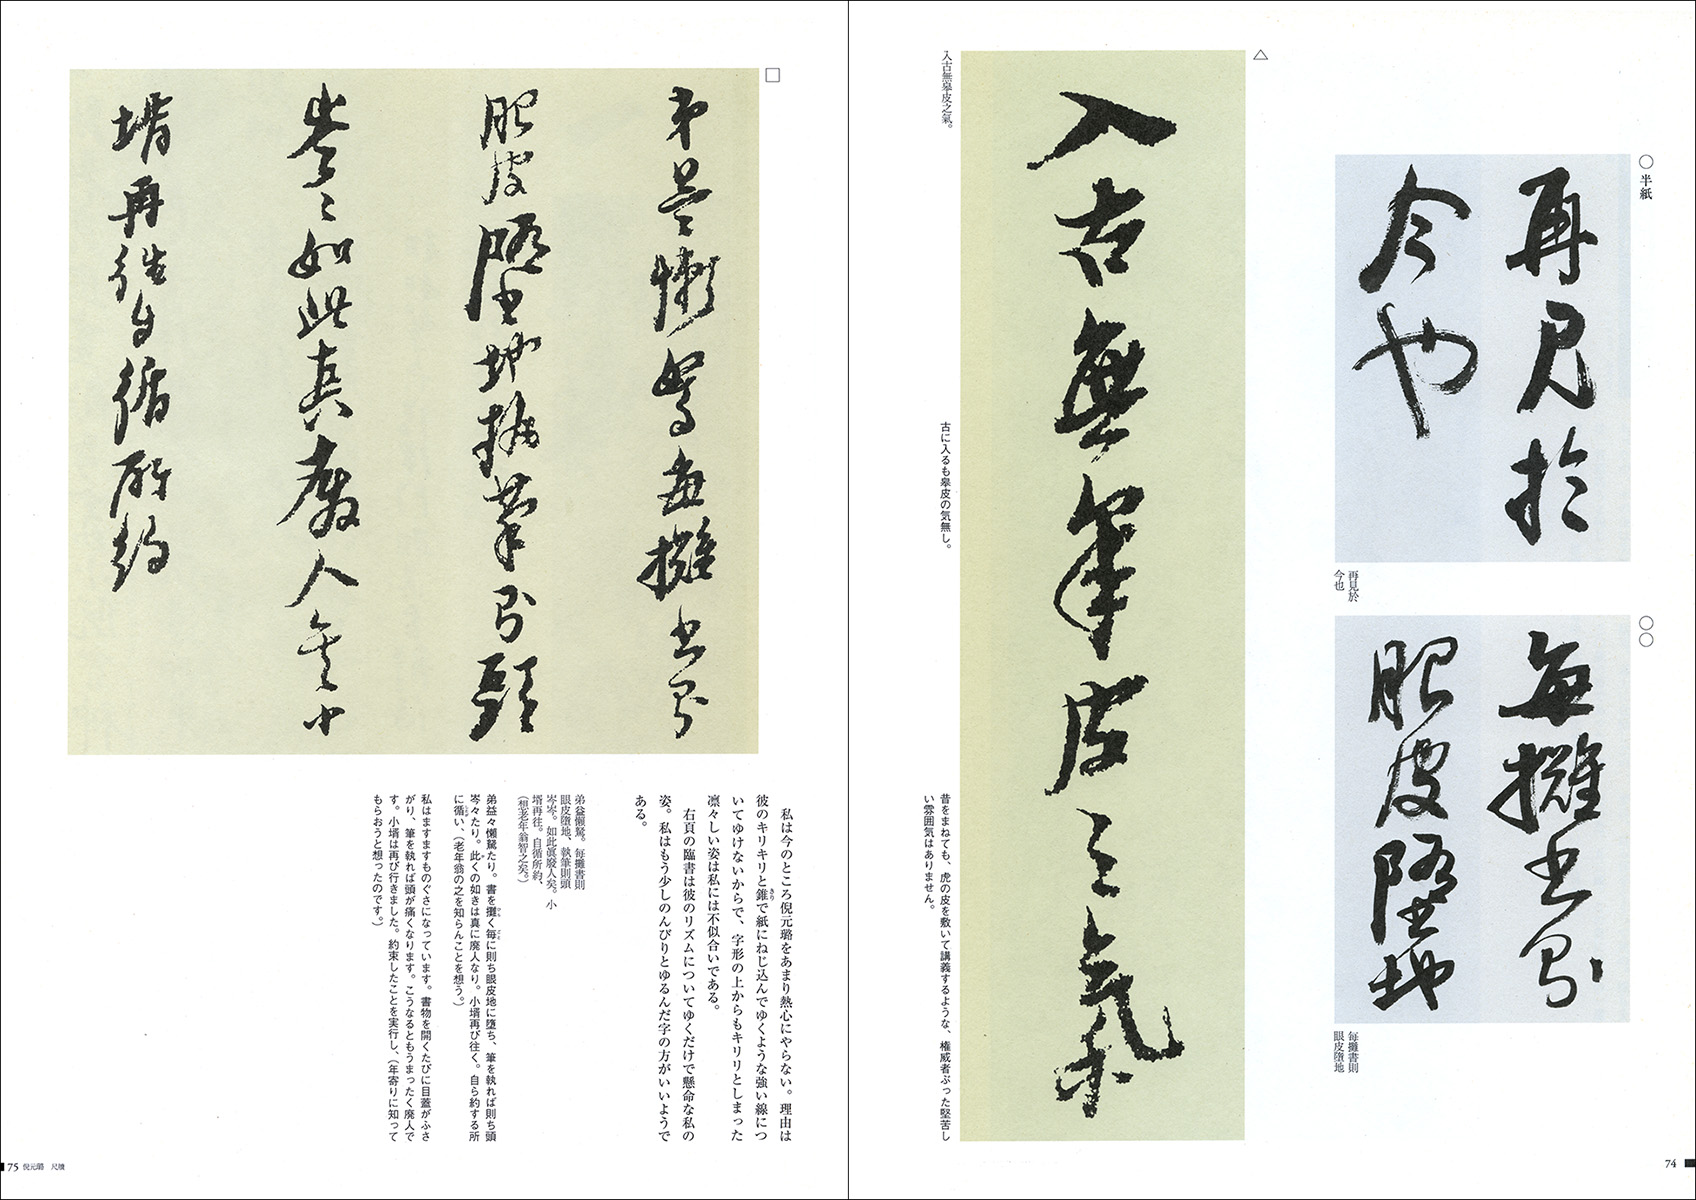 ○ 半紙
再見於
今也
再見於
今也
○○
毎攤書則
眼皮墮地
毎攤書則
眼皮墮地
△
入古無皋皮之氣
入古無皋皮之氣。
古に入るも皋皮の気無し。
昔をまねても、虎の皮を敷いて講義するような、権威者ぶった堅苦し
い雰囲気はありません。
74
□
弟益懶駑毎攤書則
眼皮墮地執筆則頭
岑々如此真廢人矣小
壻再往自循所約
私は今のところ倪元璐をあまり熱心にやらない。理由は
彼のキリキリと錐で紙にねじ込んでゆくような強い線につ
いてゆけないからで、字形の上からもキリリとしまった
凛々しい姿は私には不似合いである。
右頁の臨書は彼のリズムについてゆくだけで懸命な私の
姿。私はもう少しのんびりとゆるんだ字の方がいいようで
ある。
弟益懶駑。毎攤書則
眼皮墮地、執筆則頭
岑岑。如此眞廢人矣。小
壻再往。自循所約、
(想老年翁智之矣。)
弟益々懶駑たり。書を攤く毎に則ち眼皮地に墮ち、筆を執れば則ち頭
岑々たり。此くの如きは真に廃人なり。小壻再び往く。自ら約する所
に循い、(老年翁の之を知らんことを想う。)
私はますますものぐさになっています。書物を開くたびに目蓋がふさ
がり、筆を執れば頭が痛くなります。こうなるともうまったく廃人で
す。小壻は再び行きました。約束したことを実行し、(年寄りに知って
もらおうと想ったのです。)
75 倪元璐 尺牘